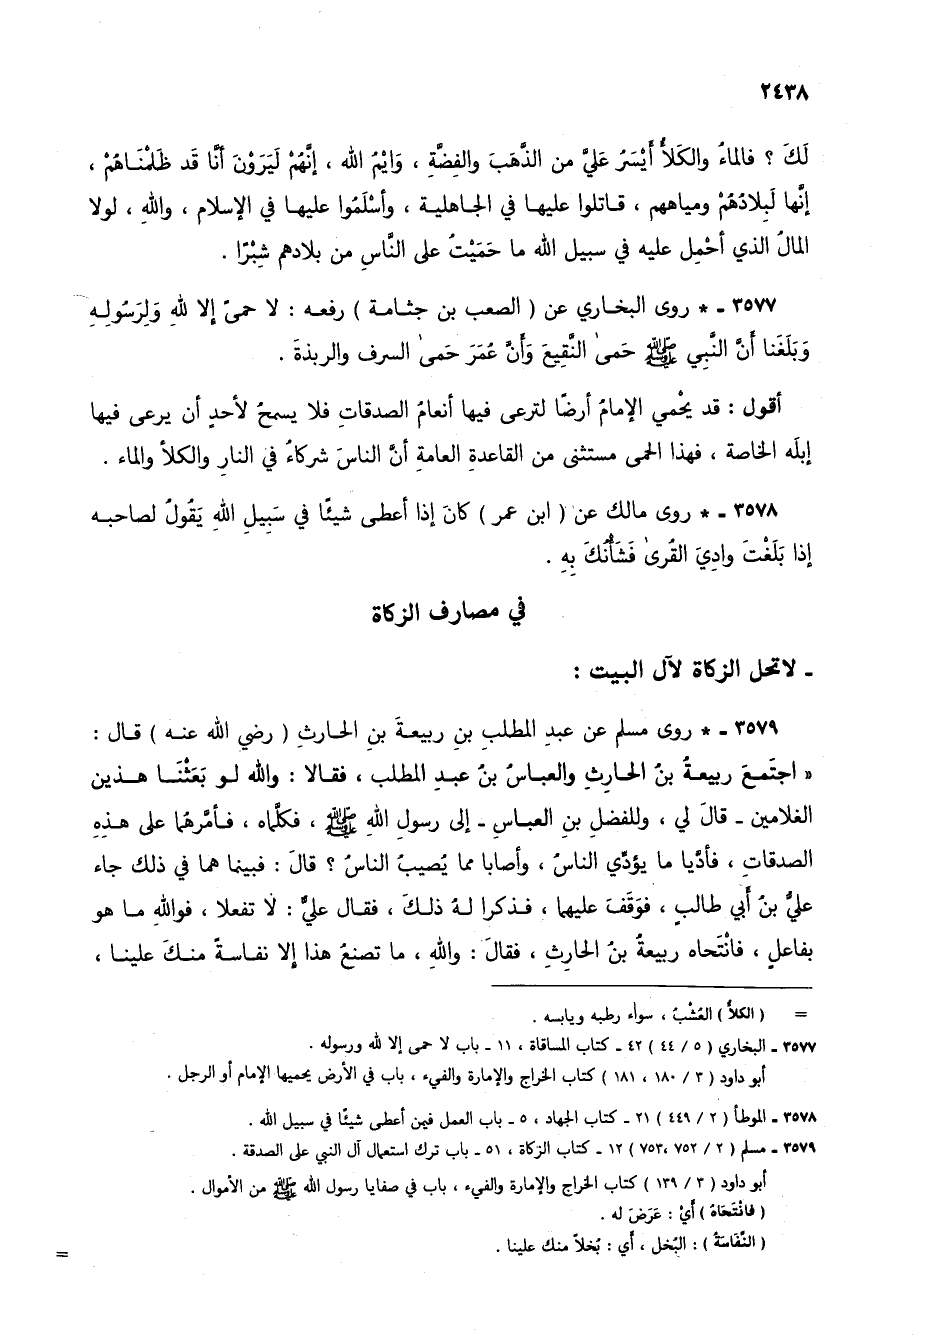 ٢٤٣٨
لَكَ ؟ فالماءُ والكَلأُ أَيْسَرُ عَليَّ من الذَّهَبَ والفِضَّةِ ، وَايْمُ الله ، إنَّهُمْ لَيَرَوْنَ أنَّا قَد ظَلَمْنَاهُمْ ،
إنَّها لَبِلادُهُمْ ومياههم ، قاتلوا عليها في الجاهلية ، وأَسْلَمُوا عليها في الإسلام ، واللهِ ، لولا
المالُ الذي أحْمِل عليه في سبيل الله ما حَمَيْتُ على النَّاسِ من بلادهم شِبْرًا .
٣٥٧٧ ـ * روى البخاري عن ( الصعب بن جثامة ) رفعه : لا حمىً إلا للهِ وَلِرَسُولِهِ
وَبَلَغَنا أنَّ النَّبي ﷺ حَمىٰ النَّقيعَ وَأنَّ عُمَرَ حَمىٰ السرف والربذةَ .
أقول : قد يَحْمي الإمامُ أرضًا لترعى فيها أنعامُ الصدقاتِ فلا يسمحُ لأحدٍ أن يرعى فيها
إبلَه الخاصة ، فهذا الحمى مستثنى من القاعدةِ العامةِ أنَّ الناسَ شركاءُ في النار والكلأ والماء .
٣٥٧٨ ـ * روى مالك عن ( ابن عمر ) كانَ إذا أعطى شيئًا في سَبِيلِ اللهِ يَقُولُ لصاحبه
إذا بَلَغْتَ وادِيَ القُرىٰ فَشَأْنُكَ بِهِ .
في مصارف الزكاة
ـ لا تحل الزكاة لآل البيت :
٣٥٧٩ ـ * روى مسلم عن عبدِ المطلبِ بنِ ربيعةَ بنِ الحارثِ ( رضي الله عنه ) قال :
« اجتَمعَ ربيعةُ بنُ الحارثِ والعباسُ بنُ عبدِ المطلب ، فقالا : والله لو بَعَثْنَا هذين
الغلامين ـ قالَ لي ، وللفضلِ بنِ العباسِ ـ إلى رسولِ اللهِ ﷺ ، فكلَّماه ، فأمَّرهُما على هذهِ
الصدقاتِ ، فأدَّيا ما يؤدِّي الناسُ ، وأصابا مما يُصيبُ الناسُ ؟ قالَ : فبينما هما في ذلك جاء
عليُّ بنُ أبي طالبٍ ، فوَقَفَ عليهما ، فذكرا لهُ ذلكَ ، فقال عليٌّ : لا تفعلا ، فواللهِ ما هو
بفاعلٍ ، فانْتَحاه ربيعةُ بنُ الحارثِ ، فقالَ : واللهِ ، ما تصنعُ هذا إلا نفاسةً منكَ علينا ،
= ( الكلأ ) العُشْبُ ، سواء رطبه ويابسه .
٣٥٧٧ ـ البخاري ( ٥ / ٤٤ ) ٤٢ ـ كتاب المساقاة ، ١١ ـ باب لا حمى إلا لله ورسوله .
أبو داود ( ٣ / ١٨٠ ، ١٨١ ) كتاب الخراج والإمارة والفيء ، باب في الأرض يحميها الإمام أو الرجل .
٣٥٧٨ ـ الموطأ ( ٢ / ٤٤٩ ) ٢١ ـ كتاب الجهاد ، ٥ ـ باب العمل فيمن أعطى شيئًا في سبيل الله .
٣٥٧٩ ـ مسلم ( ٢ / ٧٥٢ ،٧٥٣ ) ١٢ ـ كتاب الزكاة ، ٥١ ـ باب ترك استعمال آل النبي على الصدقة .
أبو داود ( ٣ / ١٣٩ ) كتاب الخراج والإمارة والفيء ، باب في صفايا رسول الله ﷺ من الأموال .
( فانْتَحاهُ ) أيْ : عَرَضَ له .
( النَّفَاسَةُ ) : البُخل ، أي : بُخلاً منك علينا .
=